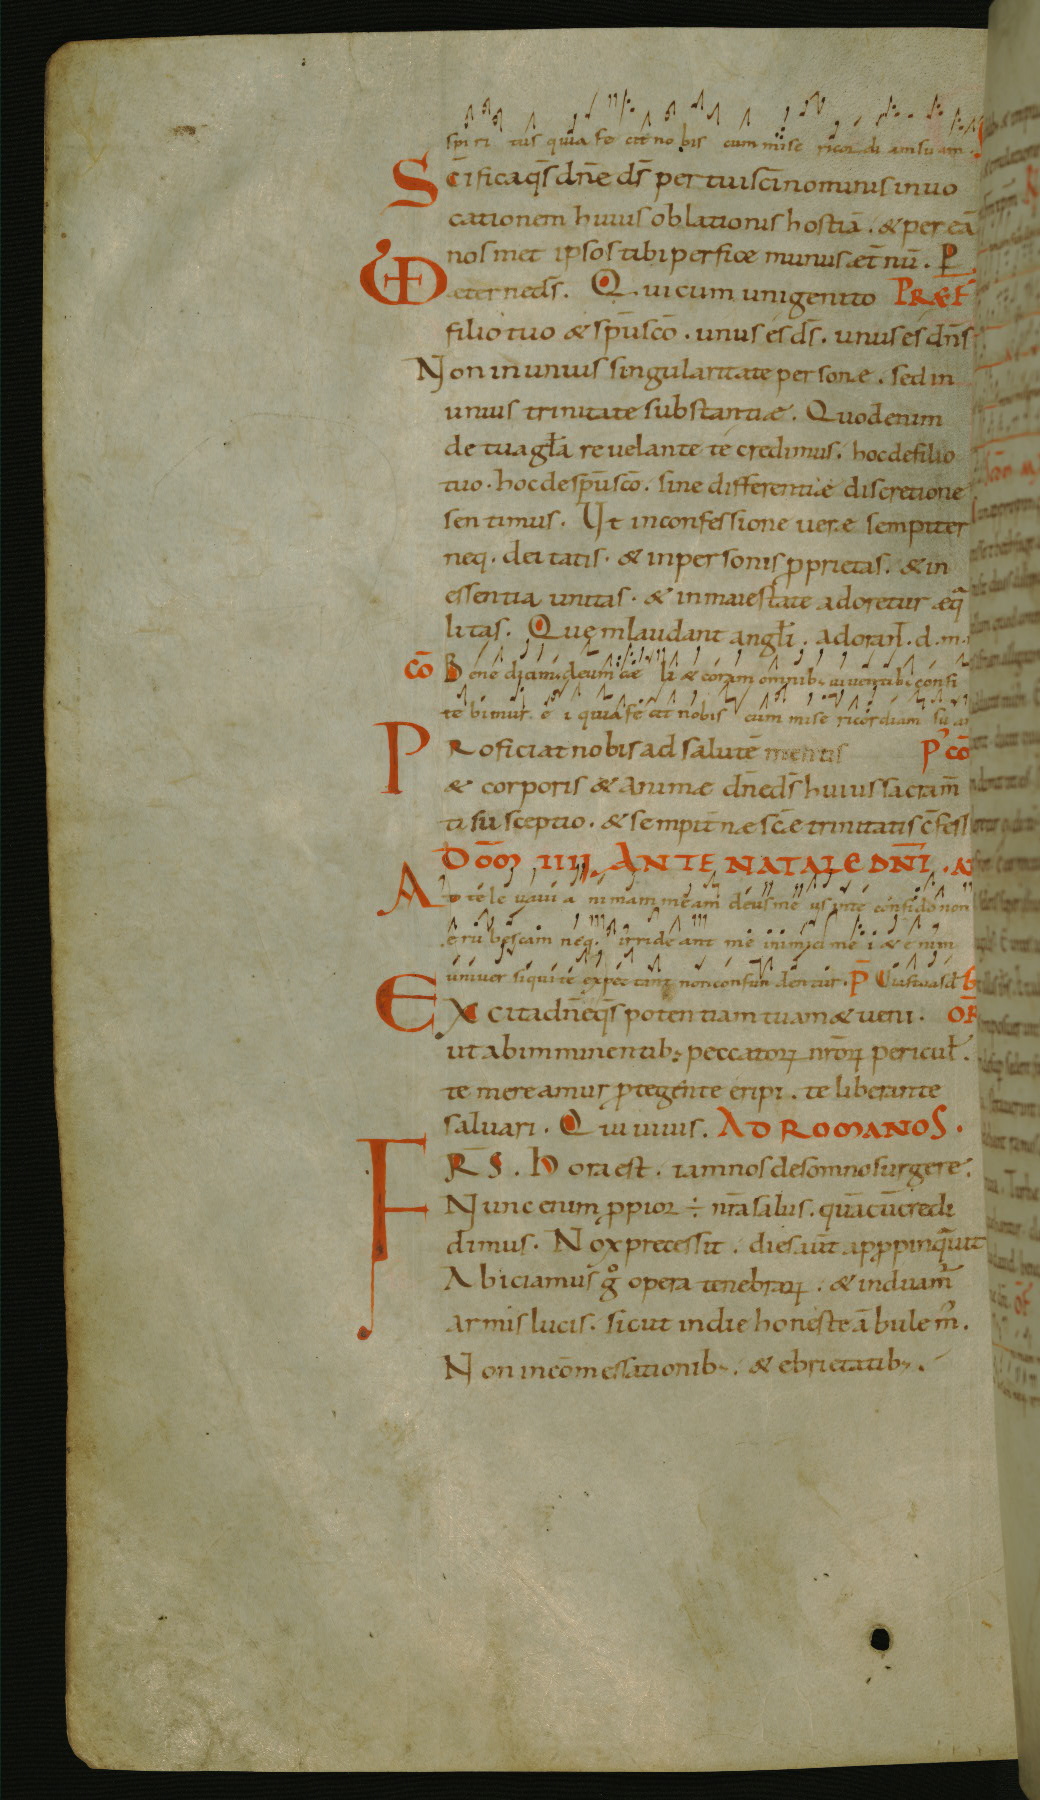 spiri tus quia fe cit no bis cum mise ricor di am suam.
Scīfica qs̄ dn̄e ds̄ per tui sc̄i nominis inuo
cationem huius oblationis hostiā. & per eā
nosmet ipsos tibi perfice munus æt̄nū. P
æterne ds̄. Qui cum unigenito PRÆF
filio tuo & sp̄u sc̄o. unus es ds̄. unus es dn̄s
Non in unius singularitate personæ. sed in
unius trinitate substantiæ. Quod enim
de tua gła reuelante te credimus. hoc de filio
tuo. hoc de sp̄u sc̄o. sine differentiæ discretione
sentimus. Ut in confessione ueræ sempiter
neq. deitatis. & in personis p̄prietas. & in
essentia unitas. & in maiestate adoretur æq̄
litas. Quem laudant angłi. adorant. d. m.
CŌ Bene dicimus deum cæ li & coram omnib; uiuentib; confi
te bimur e i quia fe cit nobis cum mise ricordiam su am
Proficiat nobis ad salutē mentis P' CŌ
& corporis & animæ dn̄e ds̄ huius sacram̄
ti susceptio. & sempit̄næ sc̄e trinitatis c̄fess
DOM̄ IIII. ANTE NATALE DN̄I. A
Ad te le uaui a nimam meam deus me us in te confido non
e ru bescam neq. irride ant me inimici me i & e nim
uniuer si qui te expec tant non confun dentur. P̄ Uias tuas d
Excita dn̄e qs̄ potentiam tuam & ueni. OR̄
ut ab imminentib; peccatorꝝ nr̄orꝝ pericuł.
te mereamur p̄tegente eripi. te liberante
saluari. Qui uiuis. AD ROMANOS.
FRS̄. Hora est. iam nos de somno surgere.
Nunc enim p̄pior ÷ nr̄a salus. quā cū credi
dimus. Nox precessit. dies aūt app̄pinquauit
Abiciamus g̊ opera tenebrarꝝ. & induam̄
armis lucis. sicut in die honeste ābulem̄.
Non in cōmessationib;. & ebrietatib;.